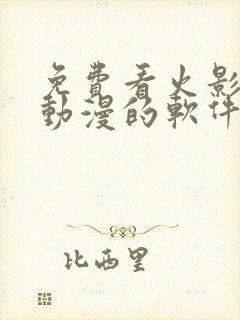 免費看火影
動漫的軟件
比西里